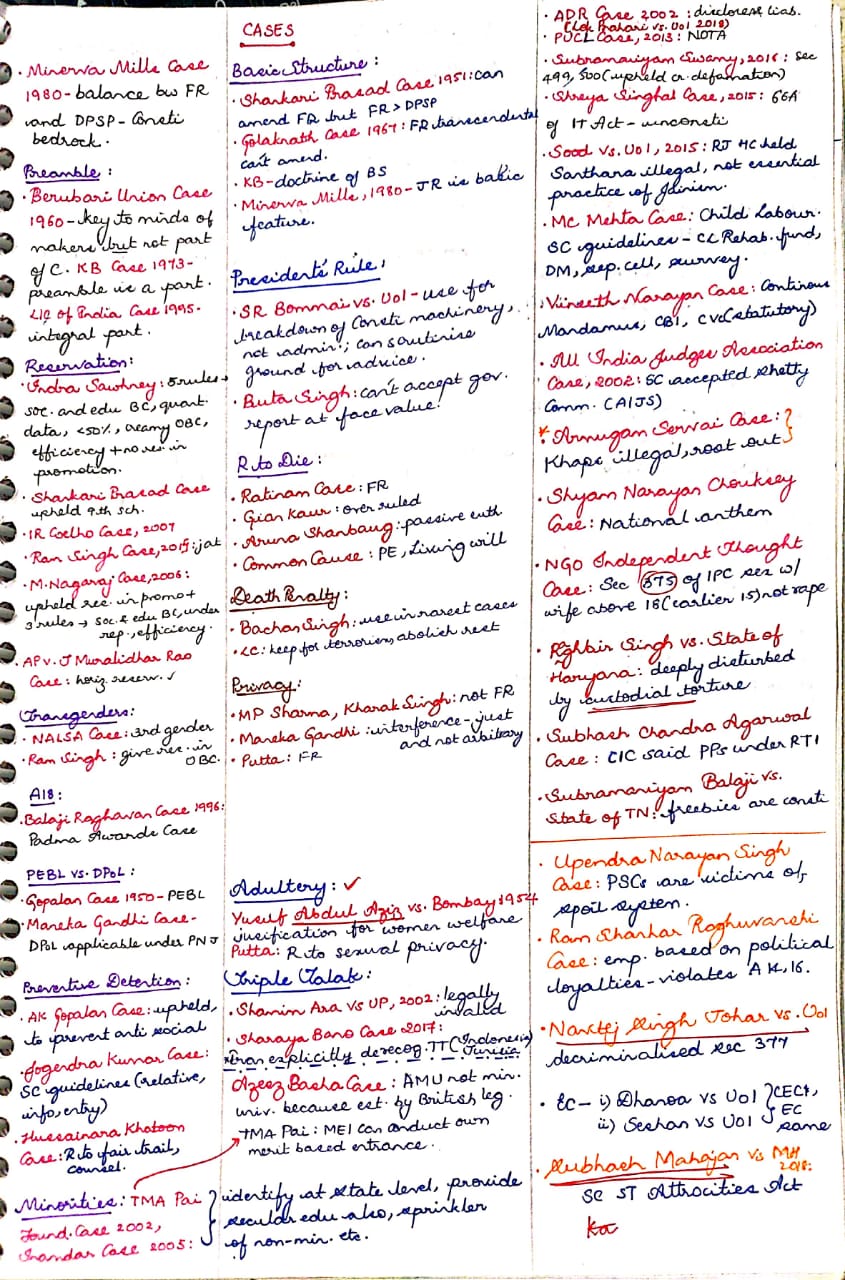 CASES
· Minerva Mills Case
1980 - balance bw FR
and DPSP - Consti
bedrock.
Preamble :
· Berubari Union Case
1960 - key to minds of
makers but not part
of C. KB Case 1973 -
preamble is a part.
LIC of India Case 1995 -
integral part.
Reservation:
· Indra Sawhney : 5 rules →
soc. and edu BC, quant.
data, <50%, creamy OBC,
efficiency + no res. in
promotion.
· Shankari Prasad Case
upheld 9th sch.
· IR Coelho Case, 2007
· Ram Singh Case, 2015 : jat
· M. Nagaraj Case, 2006 :
upheld res. in promo +
3 rules → soc & edu BC, under
rep., efficiency.
· AP v. J Muralidhar Rao
Case : horiz. reserv. ✓
Transgenders:
· NALSA Case : 3rd gender
· Ram Singh : give res. in
OBC.
A18 :
· Balaji Raghavan Case 1996:
Padma Awards Case
PEBL vs. DPOL :
· Gopalan Case 1950 - PEBL
· Maneka Gandhi Case -
DPOL applicable under PNJ
Preventive Detention :
· AK Gopalan Case : upheld,
to prevent anti social
· Jogendra Kumar Case :
SC guidelines (relative,
info, entry)
· Hussainara Khatoon
Case : R to fair trail,
counsel.
Minorities : TMA Pai
Found. Case 2002,
Inamdar Case 2005 :
identify at state level, provide
secular edu also, sprinkler
of non-min. etc.
Basic Structure :
· Shankari Prasad Case 1951 : can
amend FR but FR > DPSP
· Golaknath Case 1967 : FR transcendental
can't amend.
· KB - doctrine of BS
· Minerva Mills, 1980 - JR is basic
feature.
President's Rule :
· SR Bommai vs. UoI - use for
breakdown of Consti machinery,
not admin ; can scutinise
ground for advice.
· Buta Singh : can't accept gov.
report at face value.
R to Die :
· Ratinam Case : FR
· Gian Kaur : over ruled
· Aruna Shanbaug : passive euth.
· Common Cause : PE, Living will
Death Penalty :
· Bachan Singh : use in rarest cases
· LC : keep for terrorism, abolish rest
Privacy :
· MP Sharma, Kharak Singh : not FR
· Maneka Gandhi : interference - just
and not arbitary
· Putta : FR
Adultery : ✓
Yusuf Abdul Aziz vs. Bombay 1954
jusification for women welfare
Putta : R to sexual privacy.
Triple Talak :
· Shamim Ara vs UP, 2002 : legally
invalid
· Sharaya Bano Case 2017 :
Iran explicitly derecog. TT (Indonesia,
Tunisia
Azeez Basha Case : AMU not min.
univ. because est. by British leg.
TMA Pai : MEI can conduct own
merit based entrance.
· ADR Case 2002 : disclose liab.
(Lok Prahari vs. UoI 2018)
· PUCL Case, 2013 : NOTA
· Subramaniyam Swamy, 2016 : Sec
499, 500 (upheld cr. defamation)
· Shreya Singhal Case, 2015 : 66A
of IT Act - unconsti
· Sood vs. UoI, 2015 : RJ HC held
Santhara illegal, not essential
practice of Jainism.
· MC Mehta Case : Child Labour.
SC guidelines - CL Rehab. fund,
DM, sep. cell, survey.
· Vineeth Narayan Case : Continous
Mandamus, CBI, CVC (statutory)
· All India Judges Association
Case, 2002 : SC accepted Shetty
Comm. (AIJS)
* · Arumugam Servai Case :
Khaps illegal, root out
· Shyam Narayan Chouksey
Case : National anthem
· NGO Independent Thought
Case : Sec 375 of IPC sex w/
wife above 18 (earlier 15) not rape
· Rghbir Singh vs. State of
Haryana : deeply disturbed
by custodial torture
· Subhash Chandra Agarwal
Case : CIC said PPs under RTI
· Subramaniyam Balaji vs.
State of TN : freebies are consti
· Upendra Narayan Singh
Case : PSCs are victims of
spoil system.
· Ram Shankar Raghuvanshi
Case : emp. based on political
loyalties - violates A 14, 16.
· Navtej Singh Johar vs. UoI
decriminalised Sec 377
· EC - i) Dhanoa vs UoI } CEC &,
ii) Seshan vs UoI } EC
same
· Subhash Mahajan vs MH
2018 :
SC ST Attrocities Act